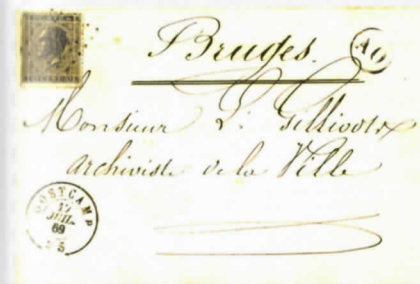 Bruges.
AO
Monsieur L. Gilliodts
archiviste de la Ville
OOSTCAMP
17
JUIL
69